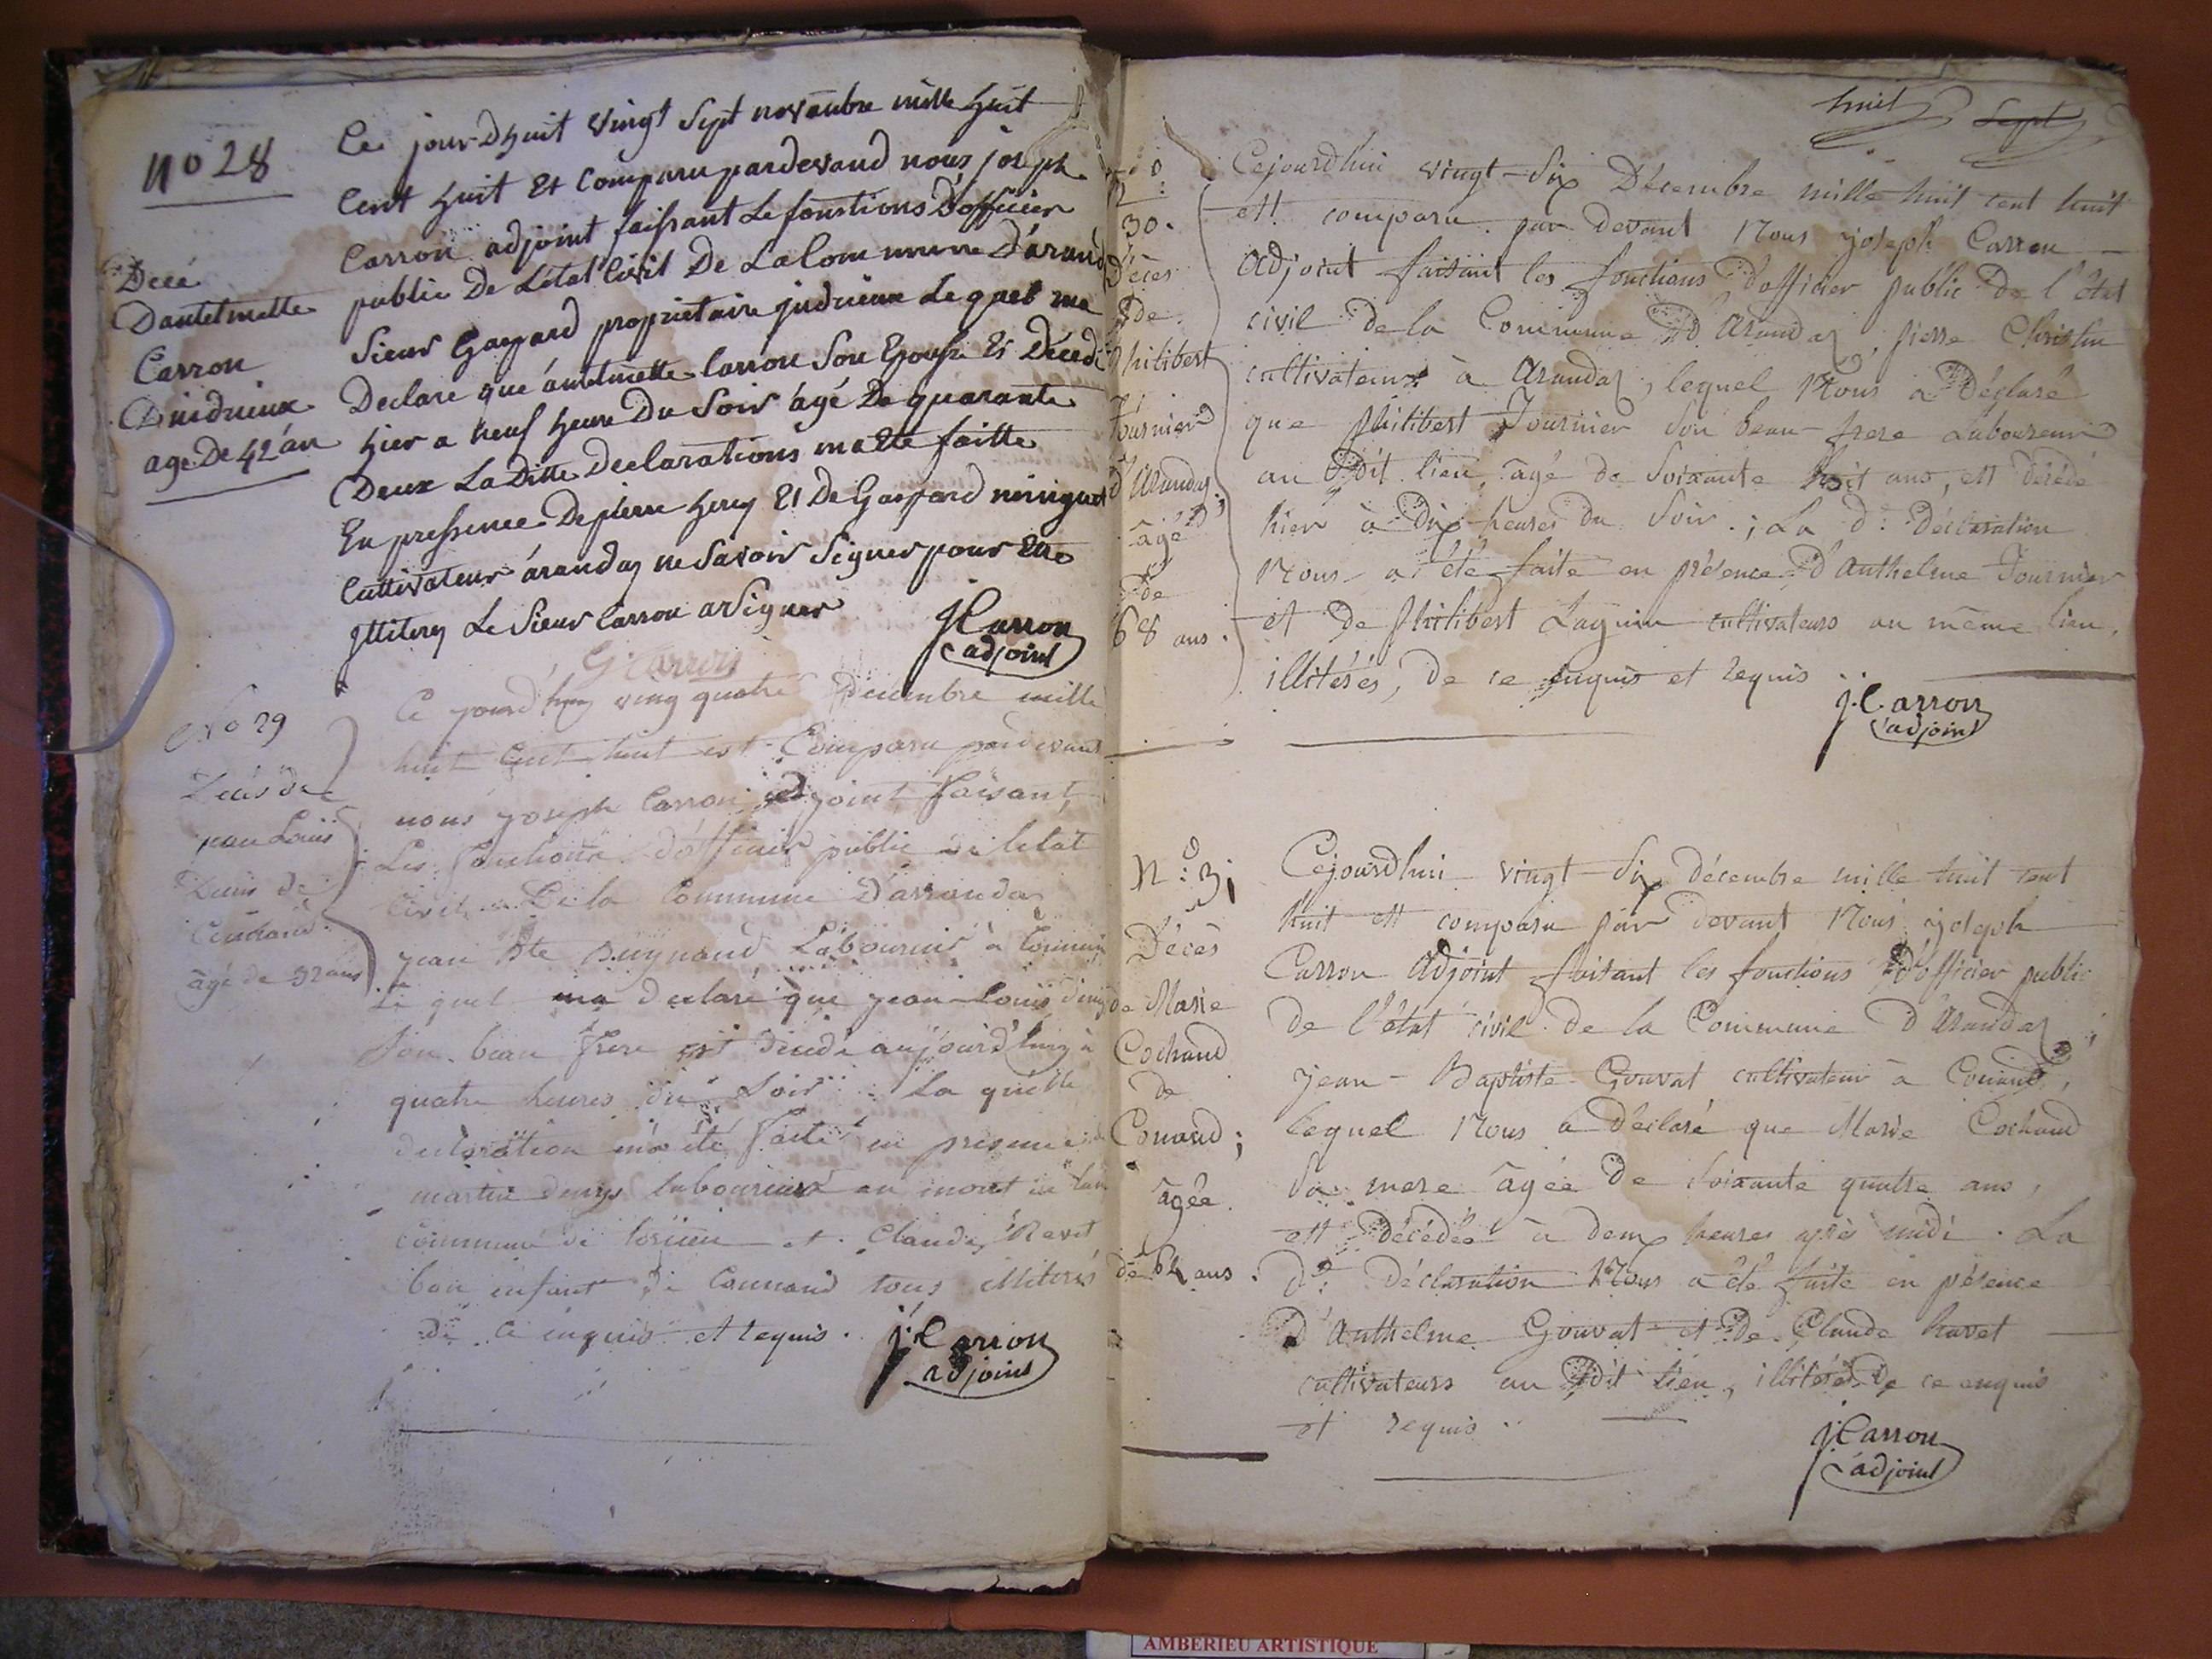 no 28
Decé
Dantelmette
Carron
Dindrieux
age De 42 an
Ce jour Dhuit vingt Sept novanbre mille huit
Cent huit Et Comparu pardevand nous joseph
Carron adjoint faissant Le fonstions D'officier
public De L'état Civil De La Commune D'arand
Sieur Gaspard propriétaire jndrieux Le quel ma
Declare que ántelmette Carron Son Epousse Es Décedé
hier a neuf heure Du Soir agé De quarante
Deux La Ditte declarations ma Ette faitte
En pressence De pierre hery Et De Gaspard minguet
Cultivateur arandaz ne Savoir Signer pour Etre
jlliterez Le Sieur Carron a Signer
J Carron
adjoint
G Carron
No 29
Décés de
jean Louis
Denis de
âgé de 32 ans
Ce jourd'huy ving quatre Décembre mille
huit Cent huit est Comparu pardevant
nous joseph Carron adjoint faisant
Les fonctions d'officier public de letat
Civil De la Commune D'arrandas
jean Bte Laboureur à
Le quel ma declaré que jean Louis denis
Son beau frere est décédé aujourd'huy à
quatre heures du Soir La quelle
declaration m'a été faite en presence de
martin denys laboureur au mont de
commune de torcieu et Claude Ravet
bon enfant de Connand tous illiterés
de ce enquis et requis.
J. Carron
adjoint
huit Sept
No
30.
Décès
de
Philibert
Fournier
d'Arandaz
âgé
de
68 ans.
Cejourdhui vingt-Six Décembre mille huit cent huit
est comparu par devant Nous joseph Carron
Adjoint faisant les fonctions d'officier public de l'état
civil de la Commune d'Arandaz, pierre Christin
cultivateur à Arandaz, lequel Nous a Déclaré
que philibert Fournier Son beau-frere Laboureur
au Dit lieu, âgé de Soixante huit ans, est décédé
hier à Dix heures du Soir; La d: déclaration
Nous a été faite en présence d'Anthelme Fournier
et de philibert Laguin cultivateurs au même lieu,
illitérés, de ce enquis et requis
J. Carron
adjoint
N: 31
Décès
de Marie
Cochand
de
Conand;
âgée
de 64 ans.
Cejourdhui vingt Six décembre mille huit cent
huit est comparu par devant Nous joseph
Carron Adjoint faisant les fonctions D'officier public
de l'état civil de la Commune d'Arandaz;
jean-Baptiste Gouvat cultivateur à Conand,
lequel Nous a déclaré que Marie Cochand
Sa mere âgée de Soixante quatre ans,
est Décédée à deux heures après midi. La
d: déclaration Nous a été faite en présence
d'Anthelme Gouvat et De Claude havet
cultivateurs au dit lieu, illitérés De ce enquis
et requis
J. Carron
adjoint
AMBERIEU ARTISTIQUE